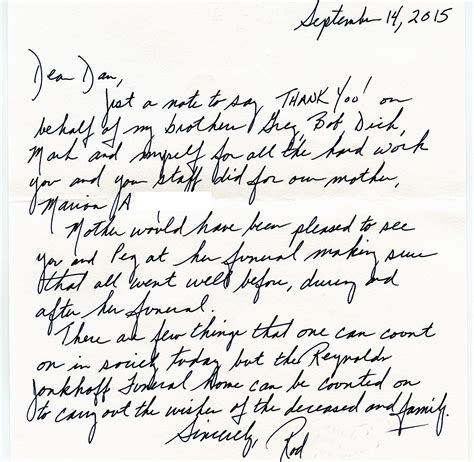 September 14, 2015
Dear Dan,
Just a note to say, THANK YOU! on
behalf of my brothers Greg, Bob Dick,
Mark and myself for all the hard work
you and your staff did for our mother,
Marion A
Mother would have been pleased to see
you and Peg at her funeral making sure
that all went well before, during and
after her funeral.
There are few things that one can count
on in society today but the Reynolds
Jonkhoff Funeral Home can be counted on
to carry out the wishes of the deceased and family.
Sincerely, Rod